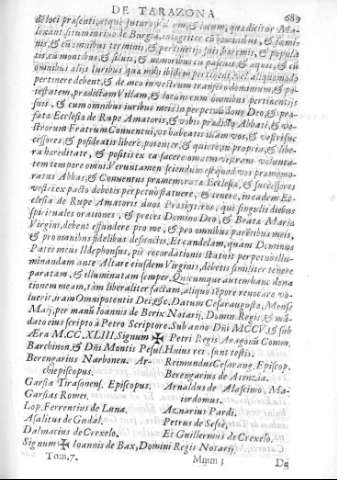 DE TARAZONA 689
& loci præsenti, atque futuro, villam, & locum, qua dicitur Ma-
lexant, situm in rivo de Burgia, integritèr cũ hominibus, & fœmi-
nis & cũ omnibus terminis, & pertinentijs suis heremis, & popula-
tis, cũ montibus, & silvis, & nemoribus, cũ pascuis, & aquis, & cũ
omnibus alijs iuribus quæ mihi ibidem pertinent, vel aliquo modo
pertinere debent, & de meo in vestrum transfero dominium, & po-
testatem, prædictam Villam, & locum cum omnibus pertinentijs
suis, & cum omnibus iuribus meis in perpetuũ dono Deo, & præ-
fatæ Ecclesæ de Rupe Amatoris, & vobis prædicto Abbati, & ve-
strorum Fratrum Conventui, ut habeatis illam vos, & vestri suc-
cessores, & possideatis liberè potentèr, & quietè, pro propria, & libe-
ra hæreditate, & positis ex ea facere omnem vestram volunta-
tem tempore omni. Verumtamen sciendum est, quod vos præmemo-
ratus Abbas, & Conventus prænominatæ Ecclesæ, & successores
vestri ex pacto debetis perpetuò statuere, & tenere, in eadem Ec-
clesia de Rupe Amatoris duos Præsbyteros, qui singulis diebus
spirituales orationes, & preces Domino Deo, & Beatæ Mariæ
Virgini, debent effundere pro me, & pro omnibus parentibus meis,
& pro omnibus fidelibus defunctis. Et candelam, quam Dominus
Pater meus Ildephonsus, piæ recordationis statuit perpetuò illu-
minandam ante Altare eiusdem Virginis, debetis similitèr tenere
paratam, & illuminatam semper. Quicumque autem hanc dona-
tionem meam, tàm liberalitèr factam, aliquo tẽpore revocare vo-
luerit, iram Omnipotentis Dei, &c. Datum Cæsaraugustæ, Mense
Maij, per manũ Ioannis de Berix Notarij, Domini Regis, & man-
dato eius scripto à Petro Scriptore. Sub anno Dñi MCCV. & sub
Æra M.CC.XLIII. Signum ✠ Petri Regis Aragonũ Comin.
Barchinon, & Dñi Montis Pesul. Huius rei sunt testis.
Berengarius Narbonen. Ar- Reimundus Cæsaraug. Episcop.
chiepiscopus. Berengarius de Atenzia.
Garsia Tirasonens. Episcopus. Arnaldus de Alascimo. Ma-
Garsias Romei. iordomus.
Lop. Ferrentius de Luna. Aznarius Pardi.
Asalitus de Gudal. Petrus de Sesè,
Dalmacius de Crexelo. Et Guillermus de Crexelo.
Signum ✠ Ioannis de Bax, Domini Regis Notarij.
Tom. 7. Mmm 3 De